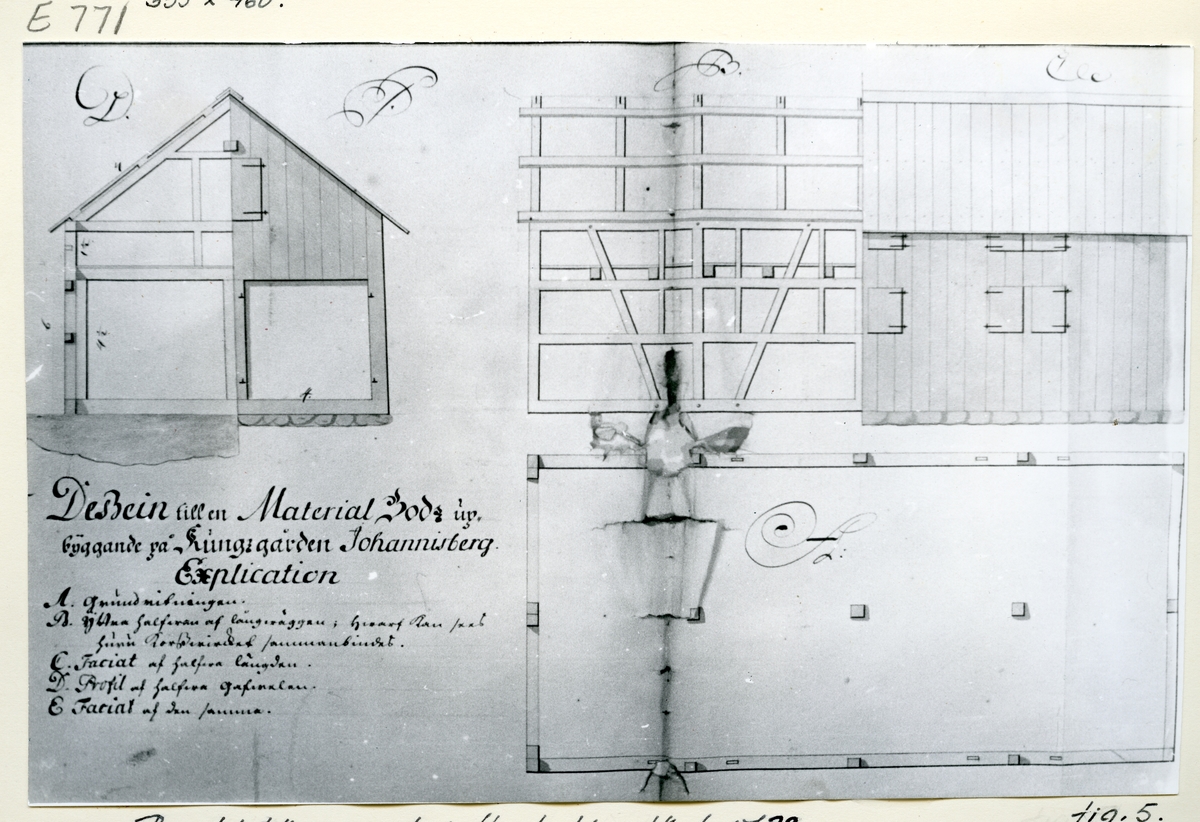 E 771 355 x 460.
D. E. B. C.
Deßein till en Material Bodz up,
byggande på Kungzgården Johannisberg.
Explication
A. Grundritningen.
B. Yttra halfwan af långwäggen; hwaraf kan sees
huru Korßwircket sammanbindes.
C. Faciat af halfwa längden.
D. Profil af halfwa Gafwelen.
E Faciat af den samma.
A.
fig. 5.